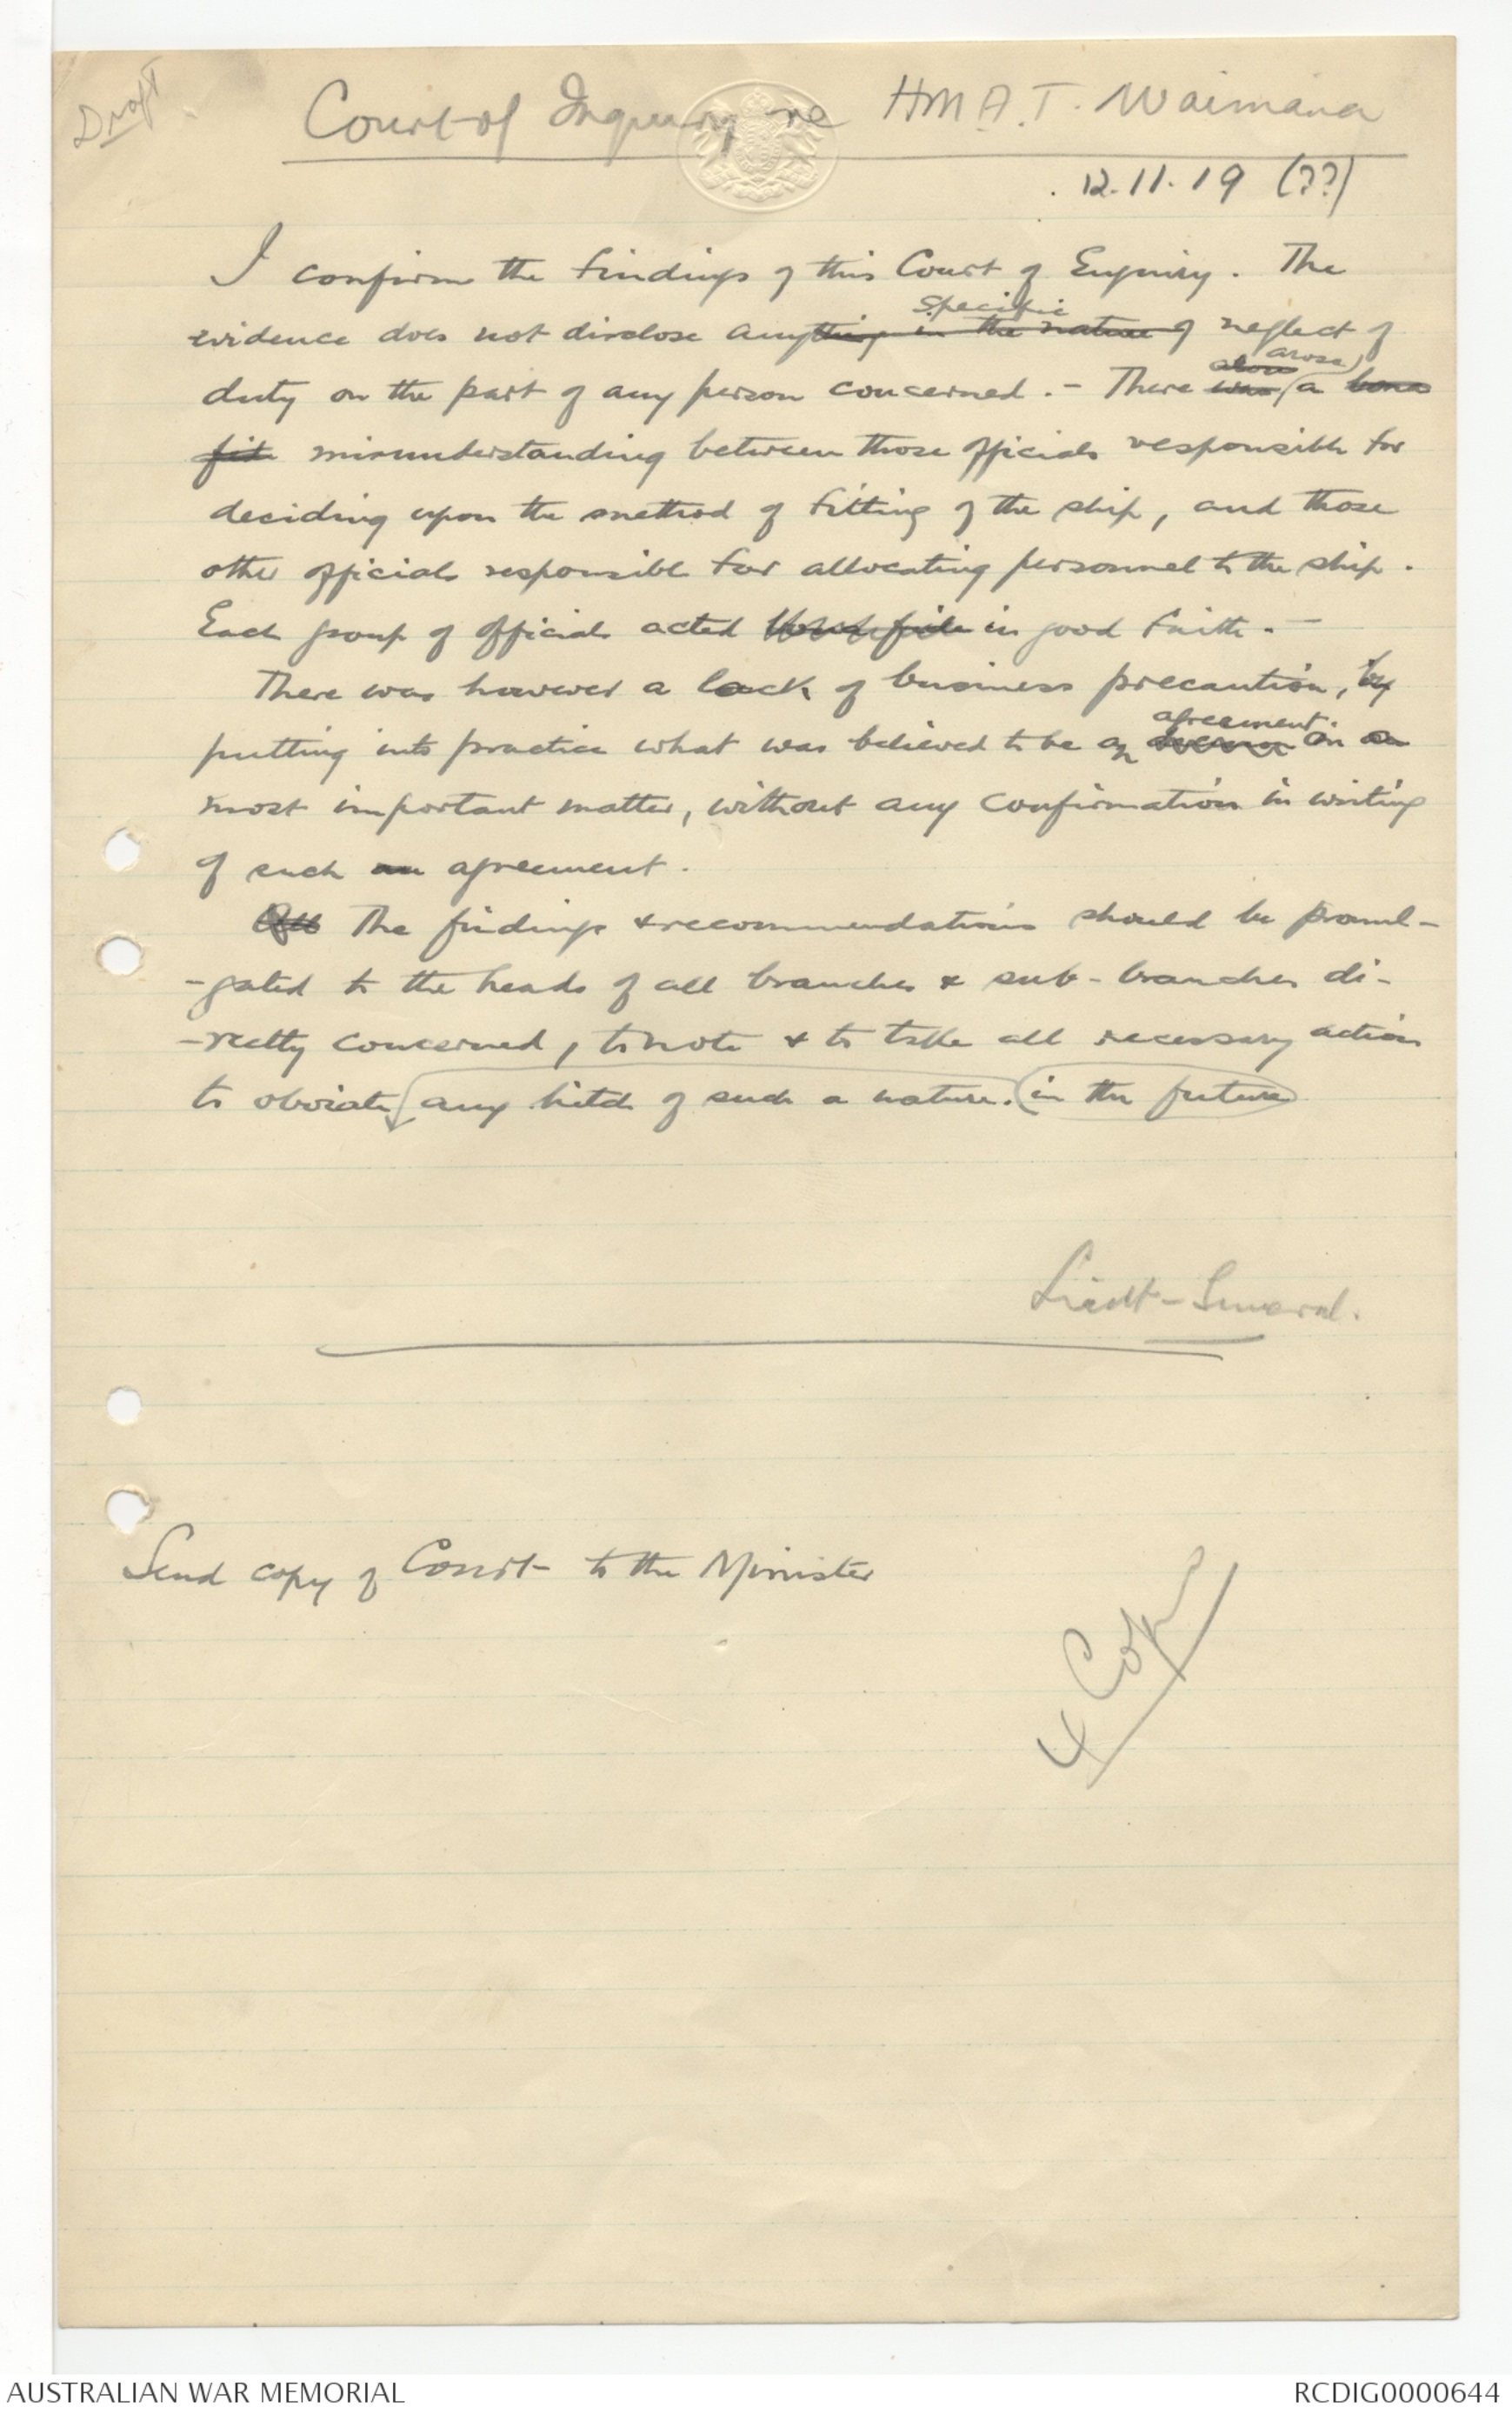 Draft
Court of Inquiry re HMA.T. Waimana
12.11.19 (??)
I confirm the findings of this Court of Enquiry. The
specific
evidence does not disclose anything in the nature of neglect of
arose
duty on the part of any person concerned. - There was a bona
fide misunderstanding between those officials responsible for
deciding upon the method of fitting of the ship, and those
other officials responsible for allocating personnel to the ship.
Each group of officials acted bona fide in good faith. -
There was however a lack of business precaution, by
agreement
putting into practice what was believed to be an on a
most important matter, without any confirmation in writing
of such an agreement.
The findings & recommendations should be promul-
-gated to the heads of all branches & sub-branches di-
-rectly concerned, to note & to take all necessary action
to obviate any hitch of such a nature. in the future
Lieut-General.
Send copy of Court to the Minister
4 Cop
AUSTRALIAN WAR MEMORIAL
RCDIG0000644